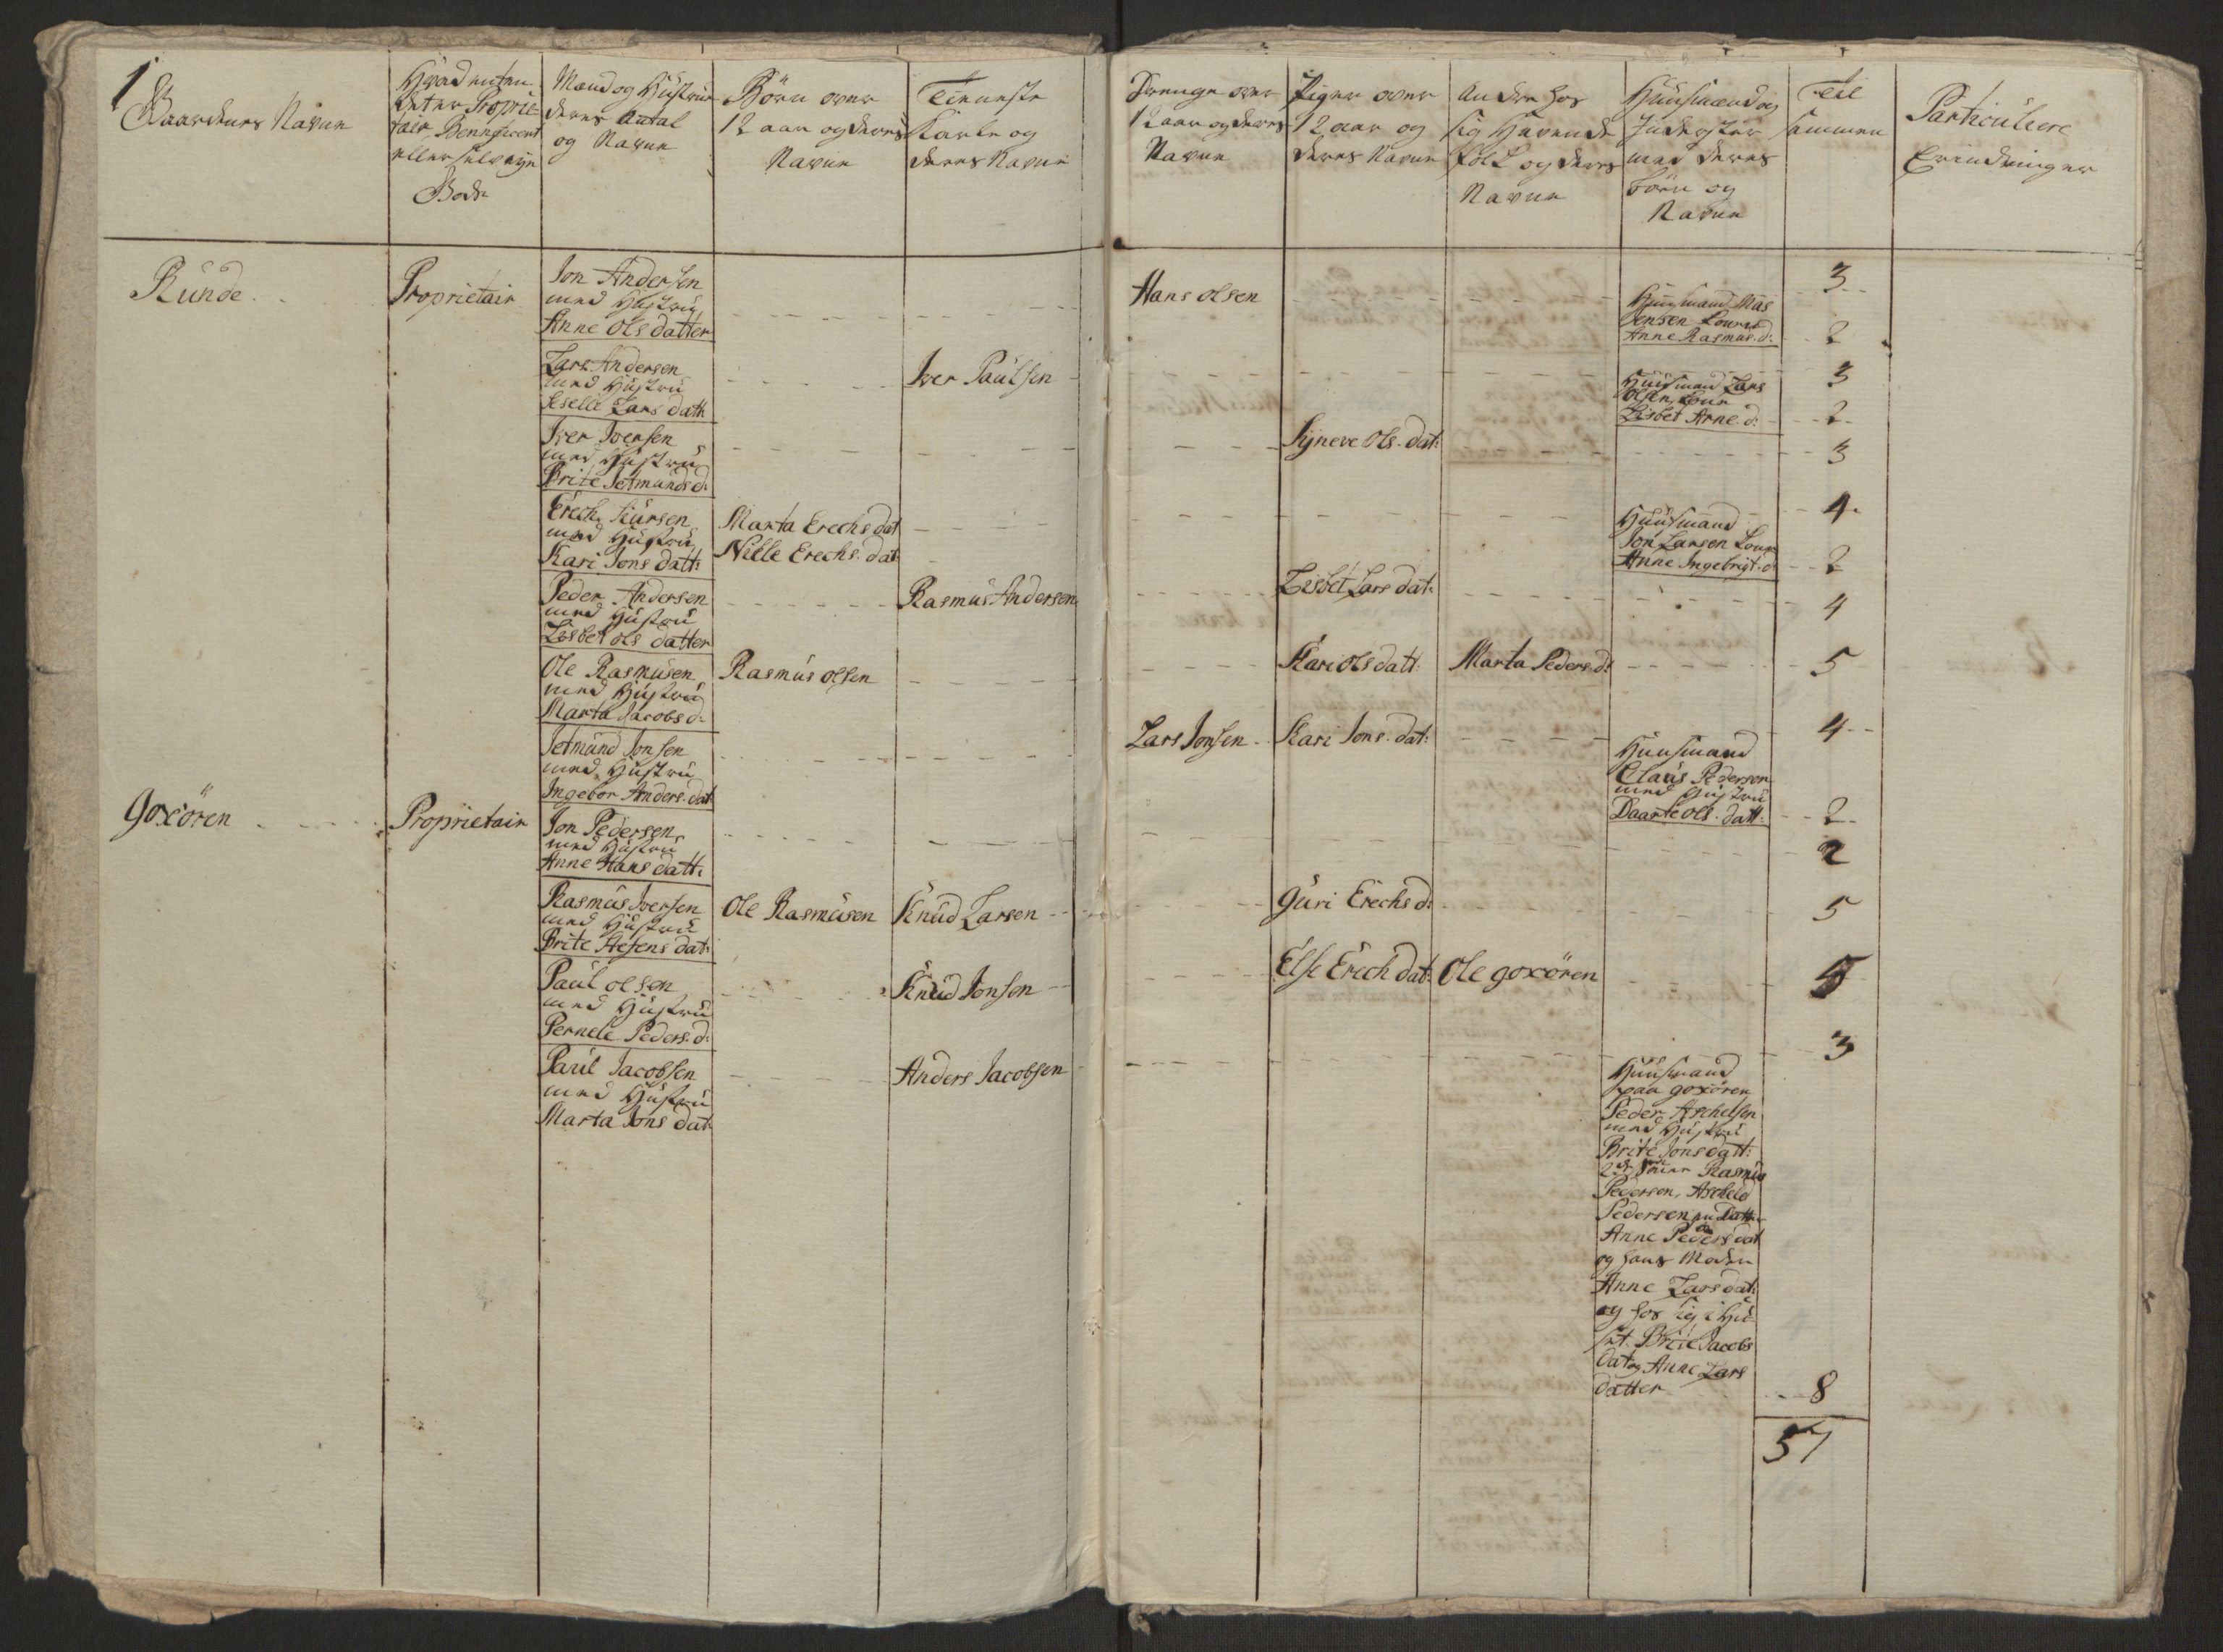 1
Gaardenes Navne
Hvad enten
det er Proprie-
tair Beneficeret
eller selv eyer
Bode
Mænd og Hüstruer
deres Antal
og Navne
Börn over
12 aar og deres
Navne
Tieneste
Karle og
deres Navne
Drenge over
12 aar og deres
Navne
Piger over
12 aar og
deres Navne
Andre hos
sig Havende
folk og deres
Navne
Huusmænd og
Inderster
med deres
börn og
Navne
Til
sammen
Particulere
Erindringer
Runde
Proprietair
Jon Andersen
med Hüstrü
Anne Ols datter
Hans olsen
3
Huusmand Mas
Jensen
Anne Rasmus. d:
2
Lars Andersen
med Hüstrü
Lars datt
Iver Paulsen
3
Huusmand Lars
Olsen
Lisbet Arne. d:
2
Iver Iversen
med Hüstrü
Brite Jetmunds d:
Syneve Ols. dat:
3
Erech
med Hüstrü
Kari Jons datt:
Marta Erechs dat
Nille Erechs. dat
4
Huusmand
Jon Larsen
Anne Ingebrigt. d:
2
Peder Andersen
med Hüstrü
Lisbet ols datter
Rasmus Andersen
Lisbet Lars dat:
4
Ole Rasmüsen
med Hüstrü
Marta Jacobs d:
Rasmus olsen
Kari ols datt:
Marta Peders. d:
5
Jetmund Jonsen
med Hüstrü
Ingebor Anders. dat
Lars Jonsen
Kari Jons. dat:
4
Huusmand
Claus Pedersen
med Hüstrü
Daarte ols. datt:
2
Goxören
Proprietair
Jon Pedersen
med Hüstrü
Anne Hans datt:
2
Rasmus Iversen
med Hüstrü
Brite Stefens dat:
Ole Rasmüsen
Knüd Larsen
Guri Erechs d:
5
Paul olsen
med Hüstrü
Pernele Peders. d:
Knüd Jonsen
Else Erech dat:
Ole goxören
5
Paul Jacobsen
med Hüstrü
Marta Jons dat
Anders Jacobsen
3
Huusmand
paa goxören
Peder Aschelsen
med Hüstrü
Brite Jons datt:
2de Rasmus
Pedersen, Ascheld
Pedersen Datter
Anne Peders dat
og hans Moder
Anne Lars dat:
og hos sig i Hu-
set. Brite Jacobs
dat og Anne Lars
datter
8
57